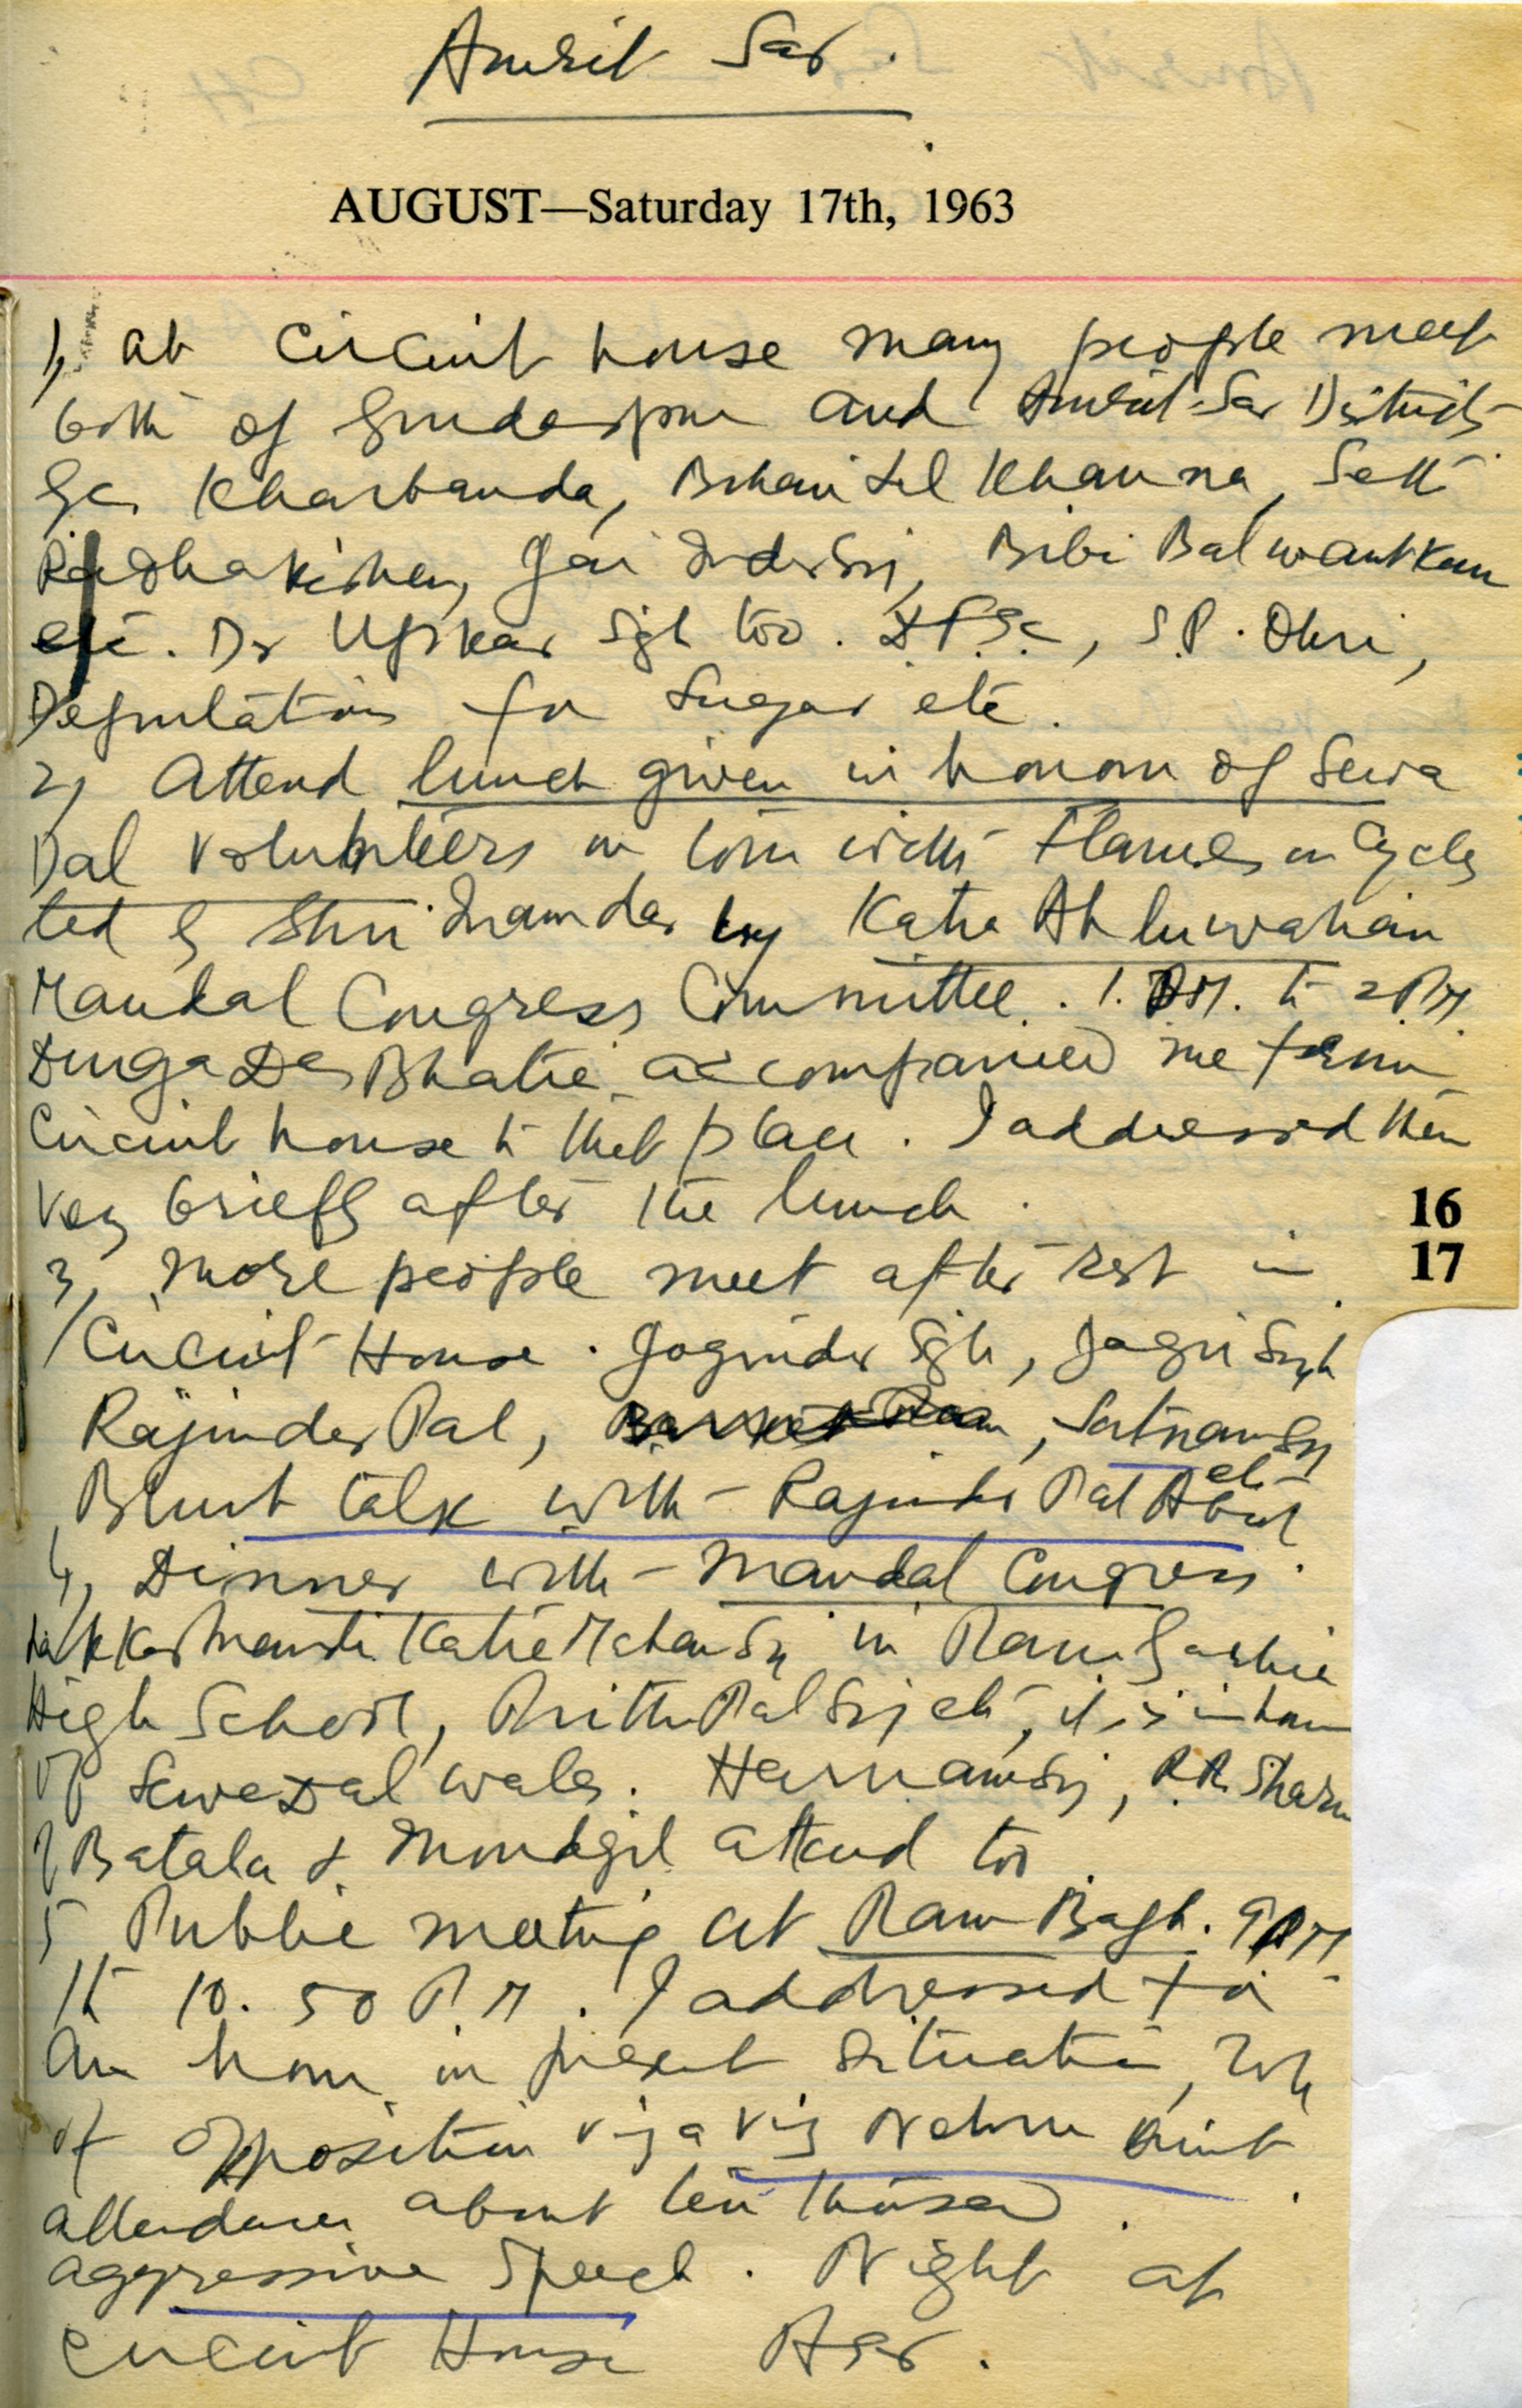 Amrit Sar.
AUGUST—Saturday 17th, 1963
1, at circuit house many people meet
both of Gurdaspur and Amrit Sar Districts
Kharbanda, Behari Lal Khanna, Seth
Radha Kishen, Jai Inder Sg, Bibi Balwant Kaur
etc. Dr Upkar Sgh too. S.P. Ohri,
Deputations for Sugar etc.
2, Attend lunch given in honour of Sewa
Dal volunteers on tour with Flames on Cycles
led by Shri Inamdar by Katra Ahluwalian
Mandal Congress Committee. 1. P.M. to 2 P.M.
Durga Das Bhatia accompanied me from
Circuit house to that place. I addressed them
very briefly after the lunch.
16
3, More people meet after rest in
17
Circuit House. Joginder Sgh, Jagir Singh
Rajinder Pal, Satnam Sg
etc
Blunt talk with Rajinder Pal Abrol.
4, Dinner with Mandal Congress
Mandi Katra Mohan Sg in Ram Garhia
High School, Prithi Pal Sg etc, it is in honour
of Sewa Dal walas. Harnam Sg, R.R. Sharma
of Batala & Moudgil attend too.
5, Public meeting at Ram Bagh. 9 P.M.
to 10.50 P.M. I addressed for
An hour on present situation, role
of opposition vis a vis Nehru Govt.
attendance about ten thousand.
aggressive speech. Night at
circuit House Asr.